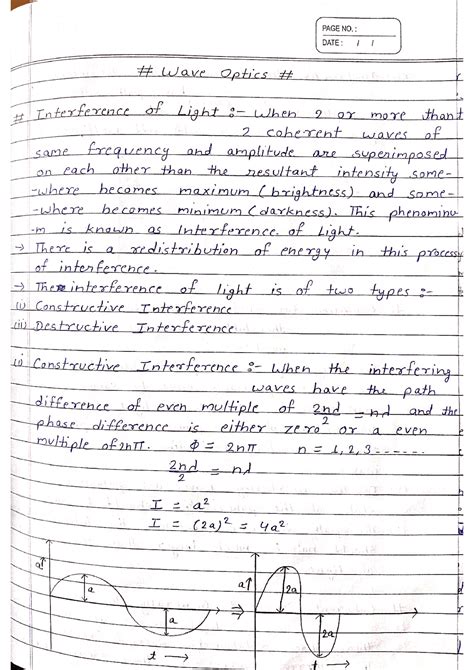 PAGE NO.:
DATE: / /
# Wave Optics #
# Interference of Light :- When 2 or more thant
2 coherent waves of
same frequency and amplitude are superimposed
on each other than the resultant intensity some-
-where becomes maximum (brightness) and some-
-where becomes minimum (darkness). This phenominu-
m is known as Interference of Light.
→ There is a redistribution of energy in this process
of interference.
→ The interference of light is of two types :-
(i) Constructive Interference
(ii) Destructive Interference
(i) Constructive Interference :- When the interfering
waves have the path
difference of even multiple of 2nd/2 = nd and the
phase difference is either zero or a even
multiple of 2nπ. Φ = 2nπ n = 1, 2, 3 ......
2nd/2 = nd
I = a²
I = (2a)² = 4a²
a↑ a a ⇒ a↑ 2a 2a
t → t →